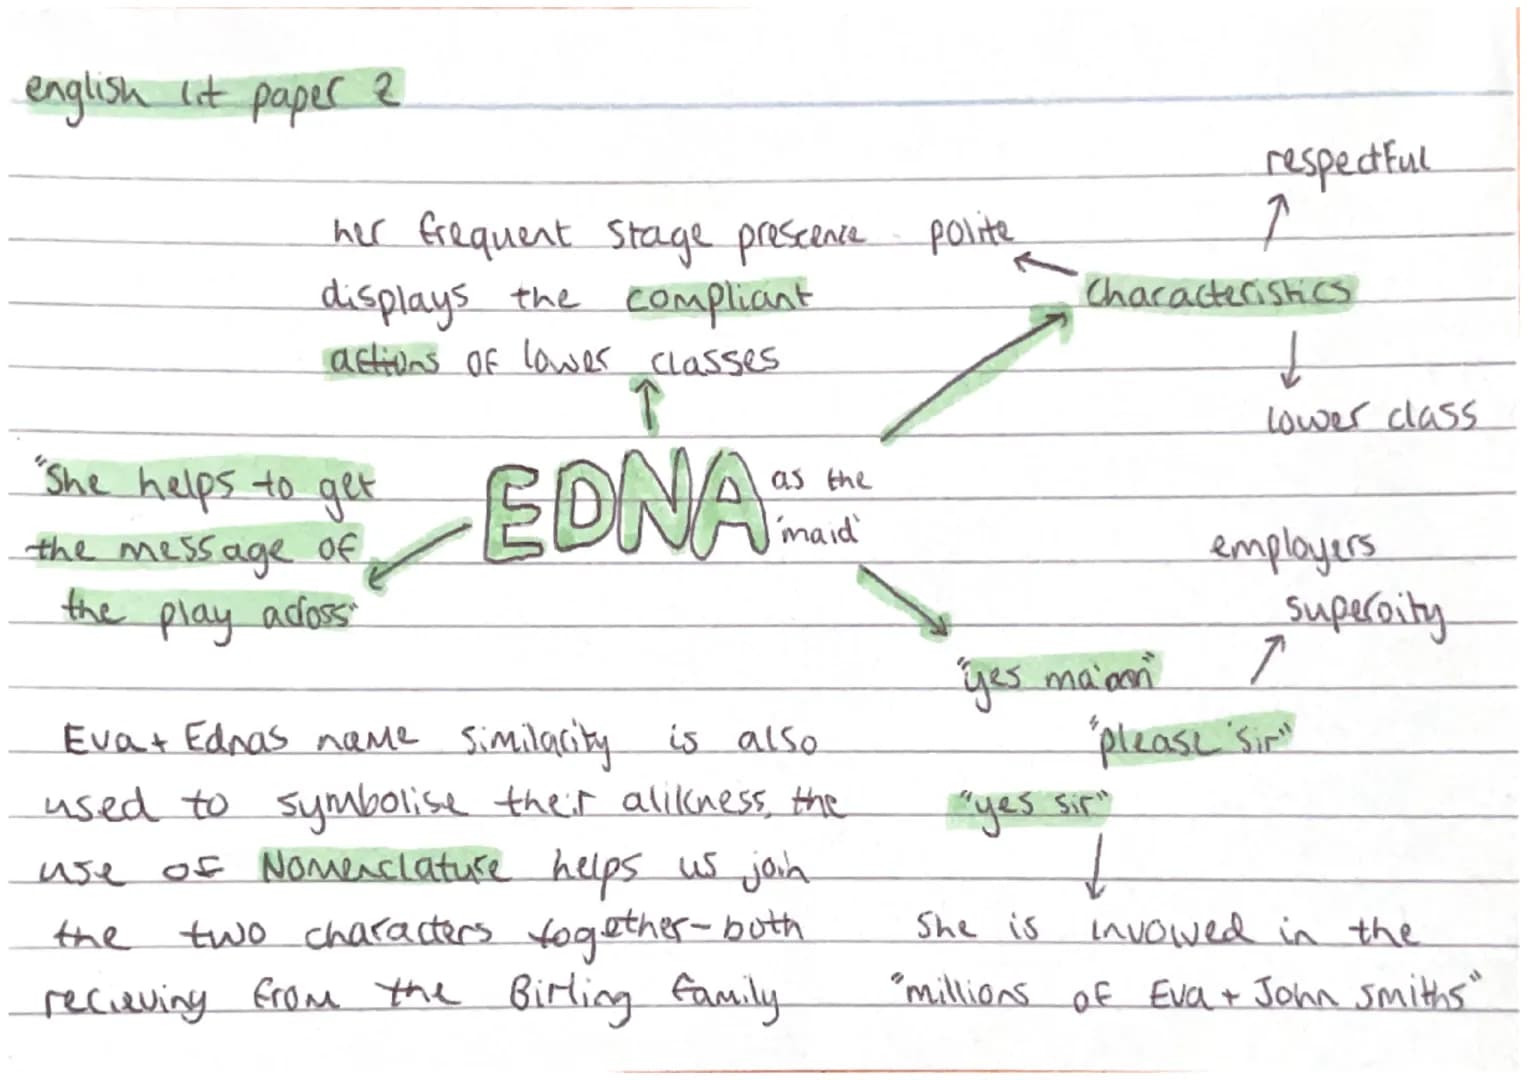 english lit paper 2
respectful
her frequent stage prescence
displays the compliant
actions of lower classes
polite
characteristics
lower class
"She helps to get
the message of
the play across"
EDNA
as the
'maid'
employers
superoity
"yes ma'am"
"please sir"
"yes sir"
Eva + Ednas name similarity is also
used to symbolise their alikness, the
use of Nomenclature helps us join
the two characters together - both
recieving from the Birling family
She is invovled in the
"millions of Eva + John smiths"